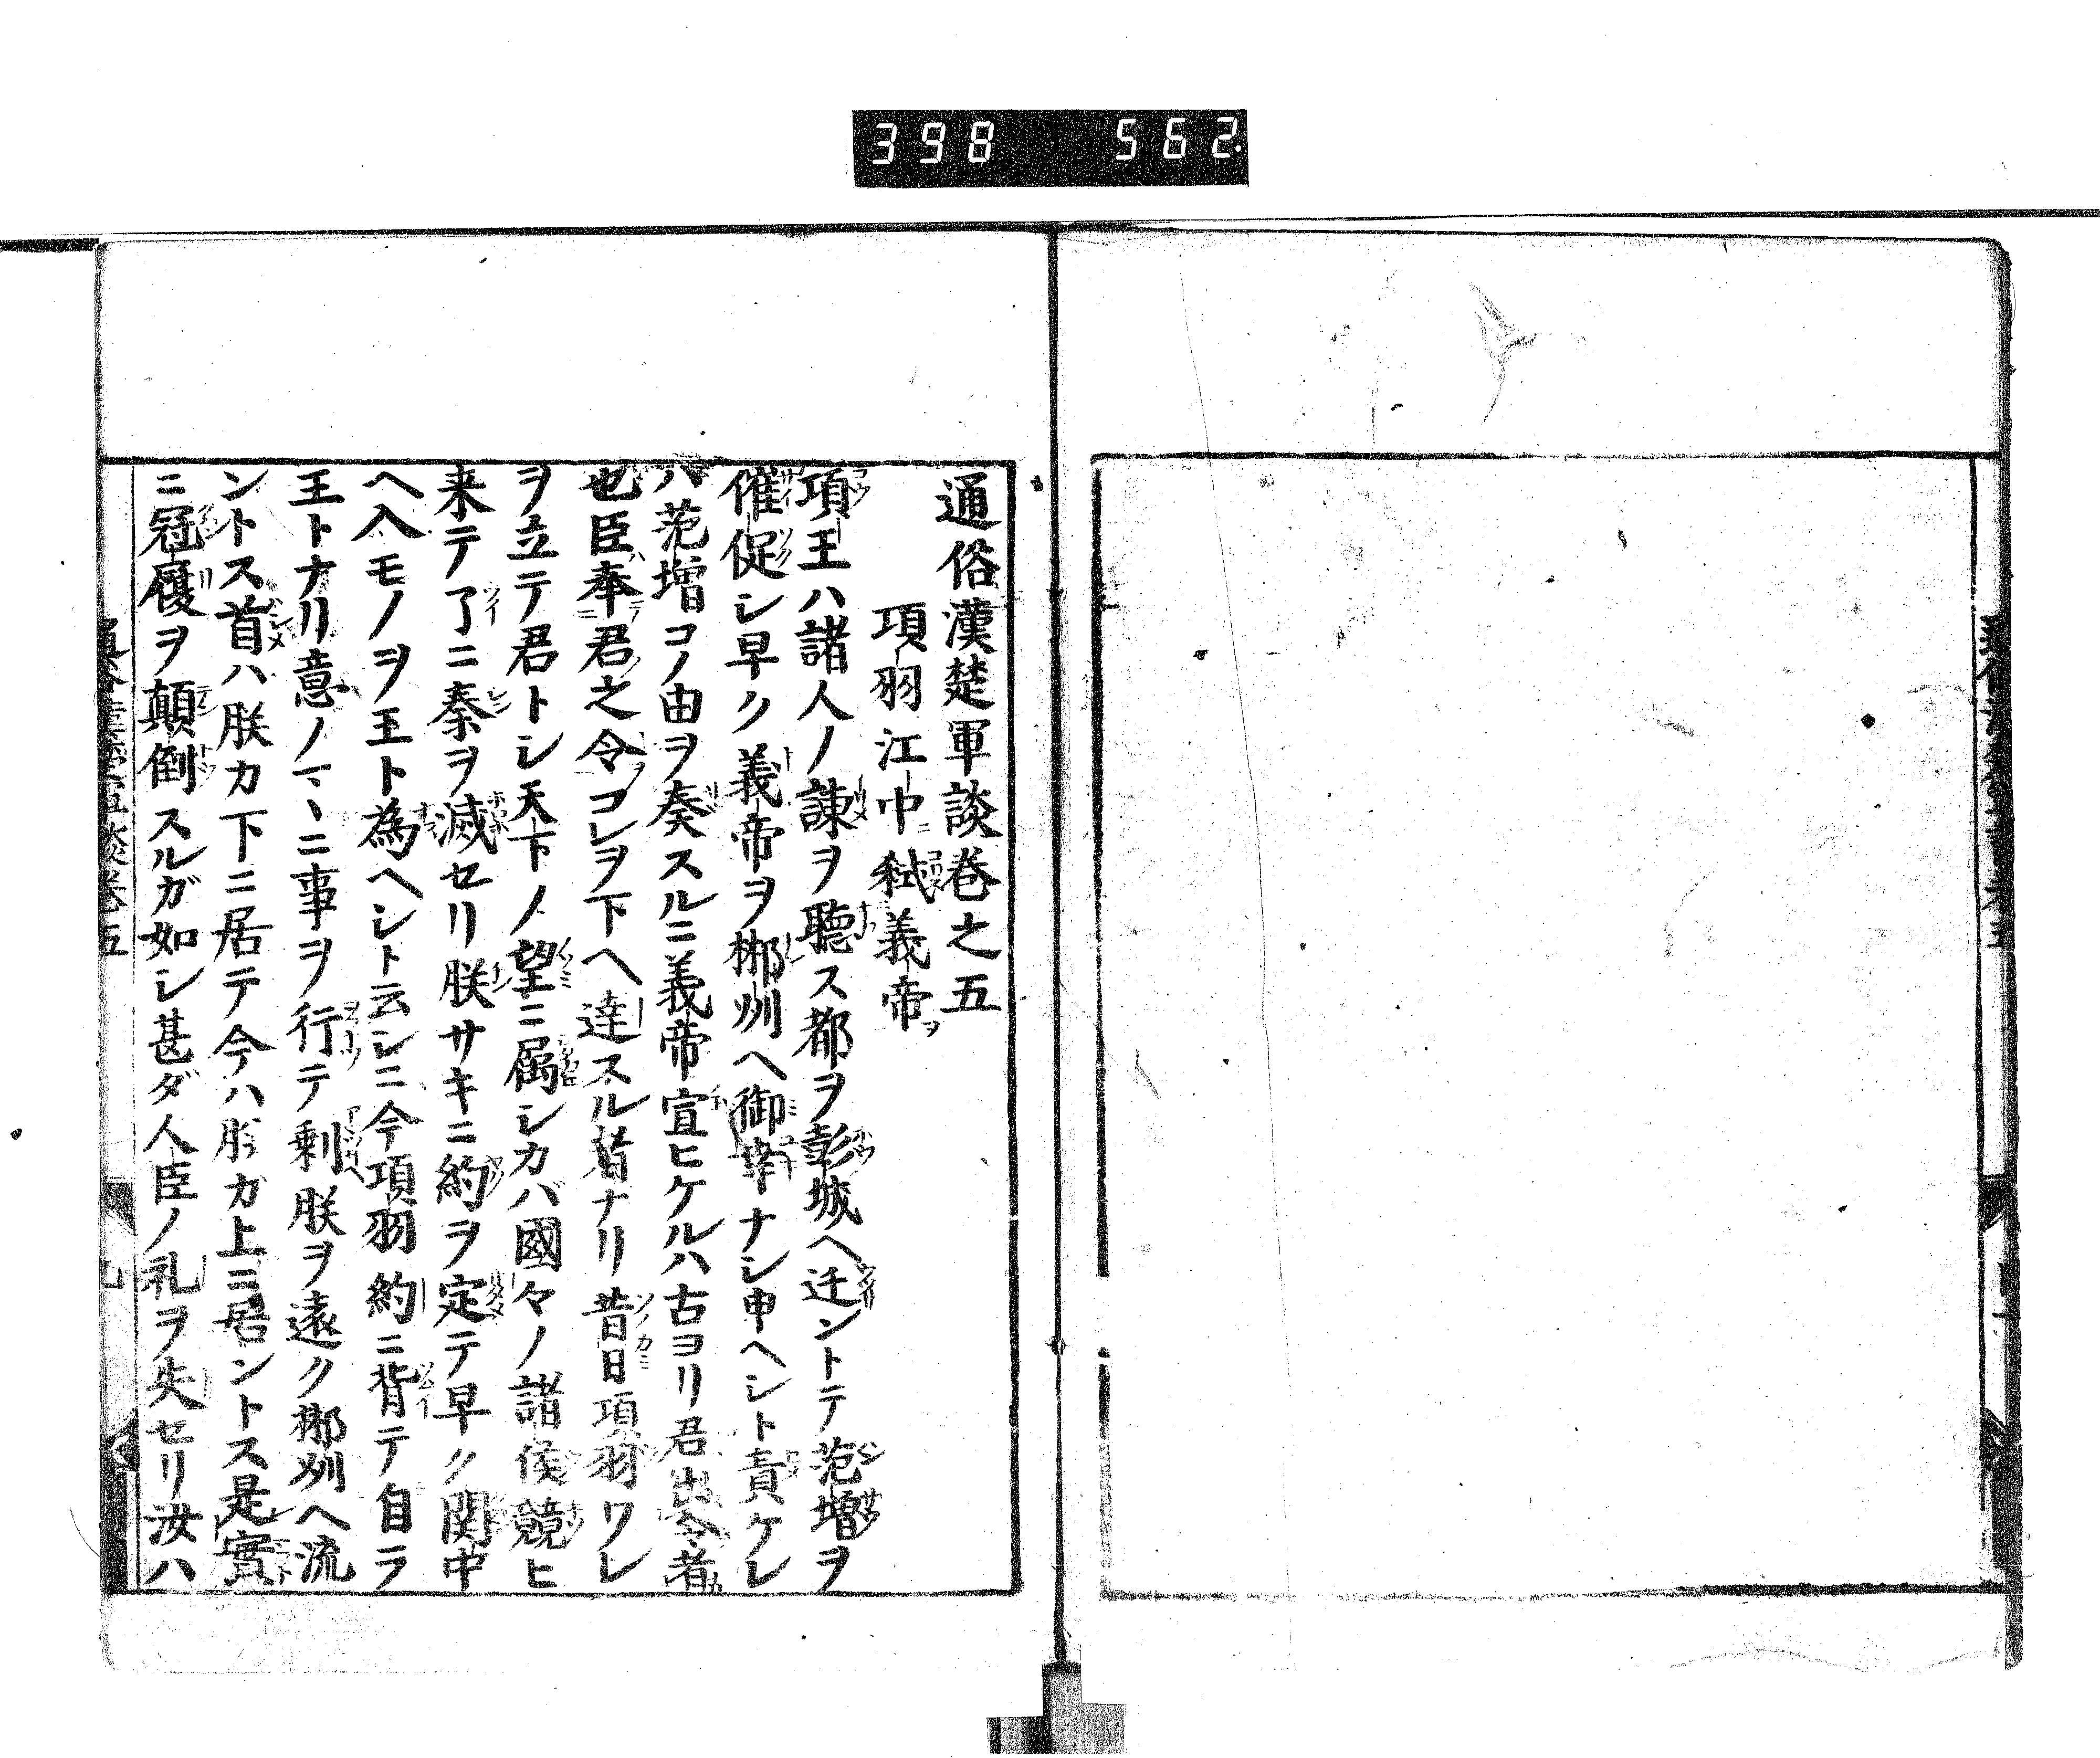 398 562
通俗漢楚軍談巻之五
項羽江中弑義帝ヲ
項王ハ諸人ノ諌ヲ聴ス都ヲ彭城ヘ迁ントテ范増ヲ
催促シ早ク義帝ヲ郴州ヘ御幸ナシ申ヘシト責ケレ
ハ范増コノ由ヲ奏スルニ義帝宣ヒケルハ古ヨリ君出令者
也臣奉君之令コレヲ下ヘ達スル者ナリ昔日項羽ワレ
ヲ立テ君トシ天下ノ望ニ属シカバ國々ノ諸侯競ヒ
来テ了ニ秦ヲ滅セリ朕サキニ約ヲ定テ早ク関中
ヘ入モノヲ王ト為ヘシト云シニ今項羽約ニ背テ自ラ
王トナリ意ノマヽニ事ヲ行テ剰朕ヲ遠ク郴州ヘ流
ントス首ハ朕カ下ニ居テ今ハ朕カ上ニ居ントス是實
ニ冠履ヲ顛倒スルガ如シ甚ダ人臣ノ礼ヲ失セリ汝ハ